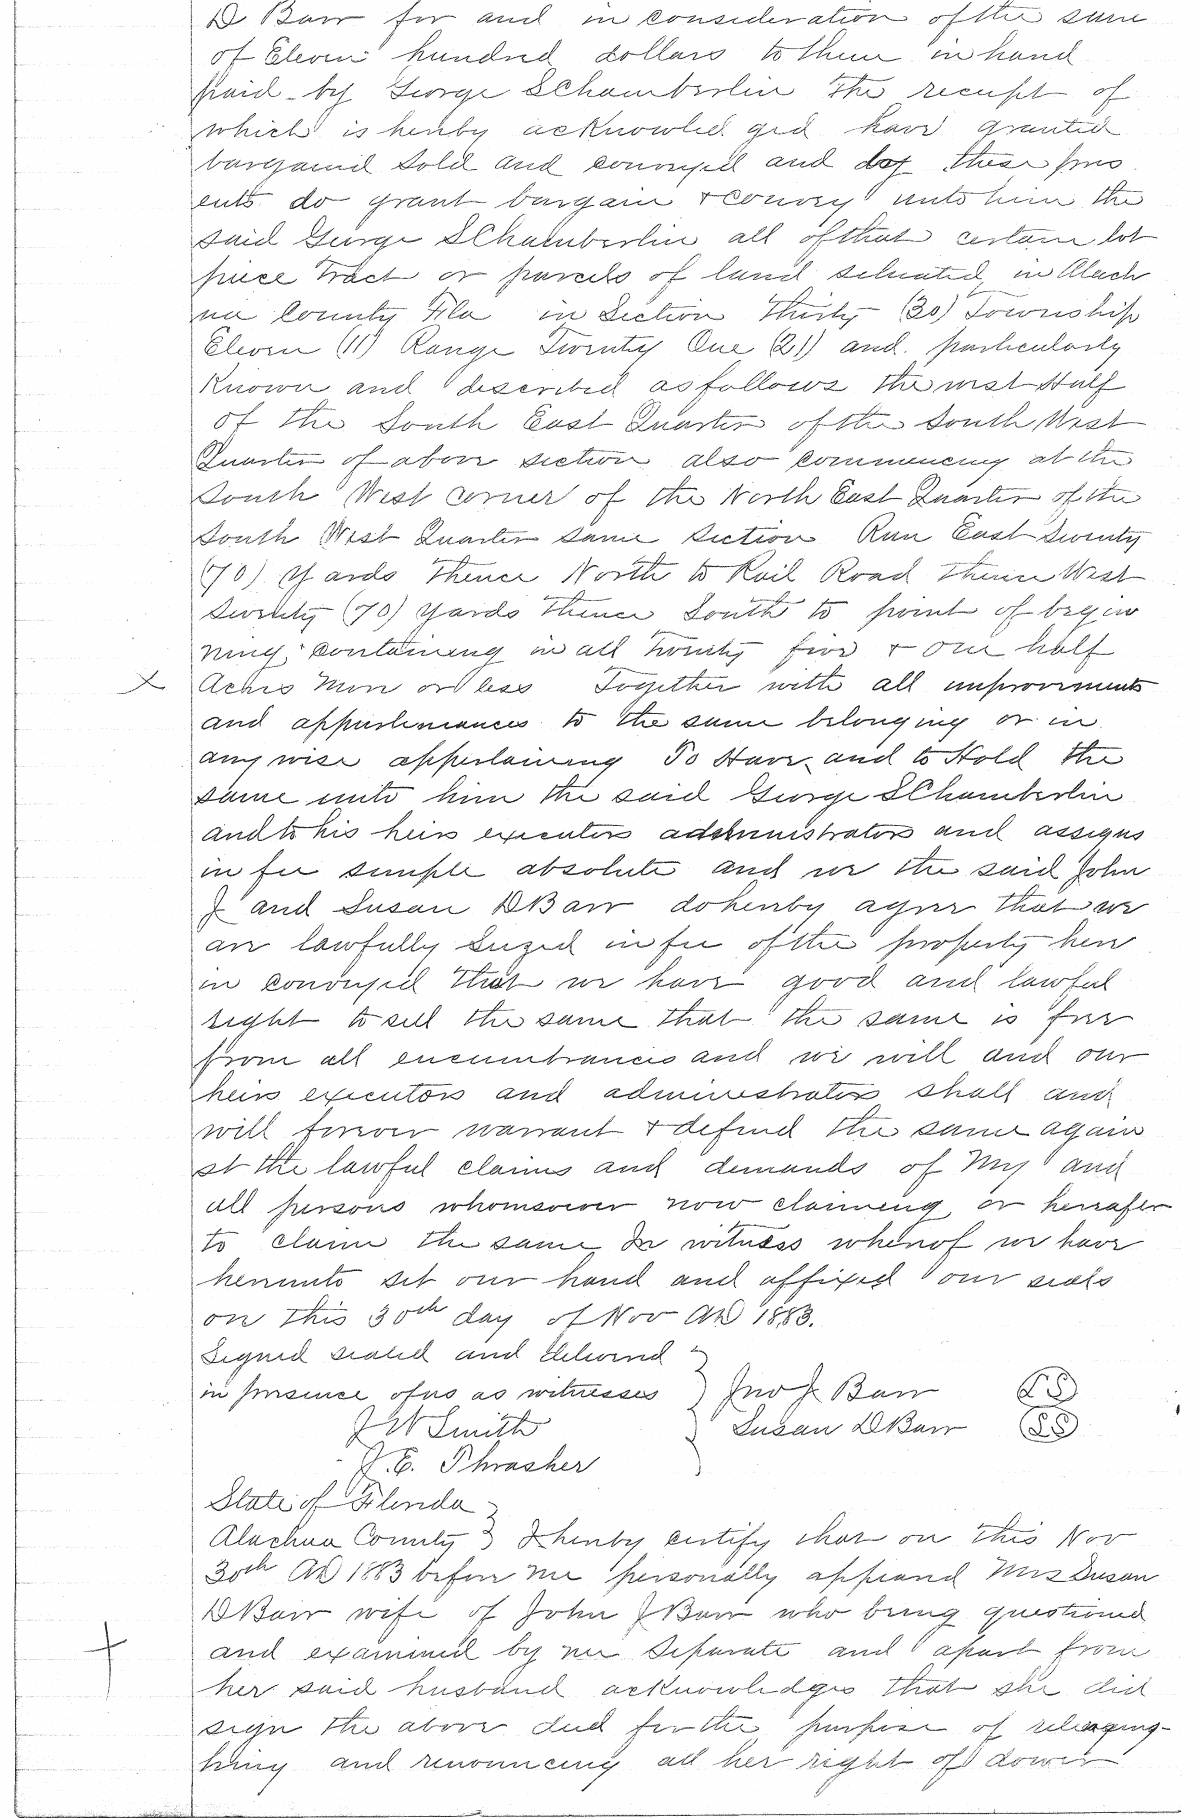 D Barr for and in consideration of the sum
of Eleven hundred dollars to them in hand
paid by George S Chamberlin the receipt of
which is hereby acknowled ged have granted
bargained sold and conveyed and by these pres
ents do grant bargain & convey unto him the
said George S Chamberlin all of that certain lot
piece Tract or parcels of land situated in Alach
ua County Fla in Section Thirty (30) Township
Eleven (11) Range Twenty One (21) and particularly
Known and described as follows the west Half
of the South East Quarter of the South West
Quarter of above section also commencing at the
South West corner of the North East Quarter of the
South West Quarter same section Run East Seventy
(70) Yards Thence North to Rail Road Thence West
Seventy (70) Yards Thence South to point of begin
ning, containing in all Twenty five & one half
X Acres More or less Together with all improvements
and appurtenances to the same belonging or in
any wise appertaining To Have and to Hold the
same unto him the said George S Chamberlin
and to his heirs executors administrators and assigns
in fee simple absolute and we the said John
J and Susan D Barr do hereby agree that we
are lawfully Seized in fee of the property here
in conveyed that we have good and lawful
right to sell the same that the same is free
from all encumbrances and we will and our
heirs executors and administrators shall and
will forever warrant & defend the same again
st the lawful claims and demands of My and
all persons whomsoever now claiming or hereafer
to claim the same In witness whereof we have
hereunto set our hand and affixed our seals
on this 30th day of Nov AD 1883.
Signed sealed and delivered
in presence of us as witnesses } Jno J Barr (LS)
J W Smith Susan D Barr (LS)
J. E. Thrasher
State of Florida
Alachua County } I hereby certify that on this Nov
30th AD 1883 before me personally appeared Mrs Susan
D Barr wife of John J Barr who being questioned
and examined by me Separate and apart from
her said husband acknowledges that she did
sign the above deed for the purpose of
and renouncing all her right of dower